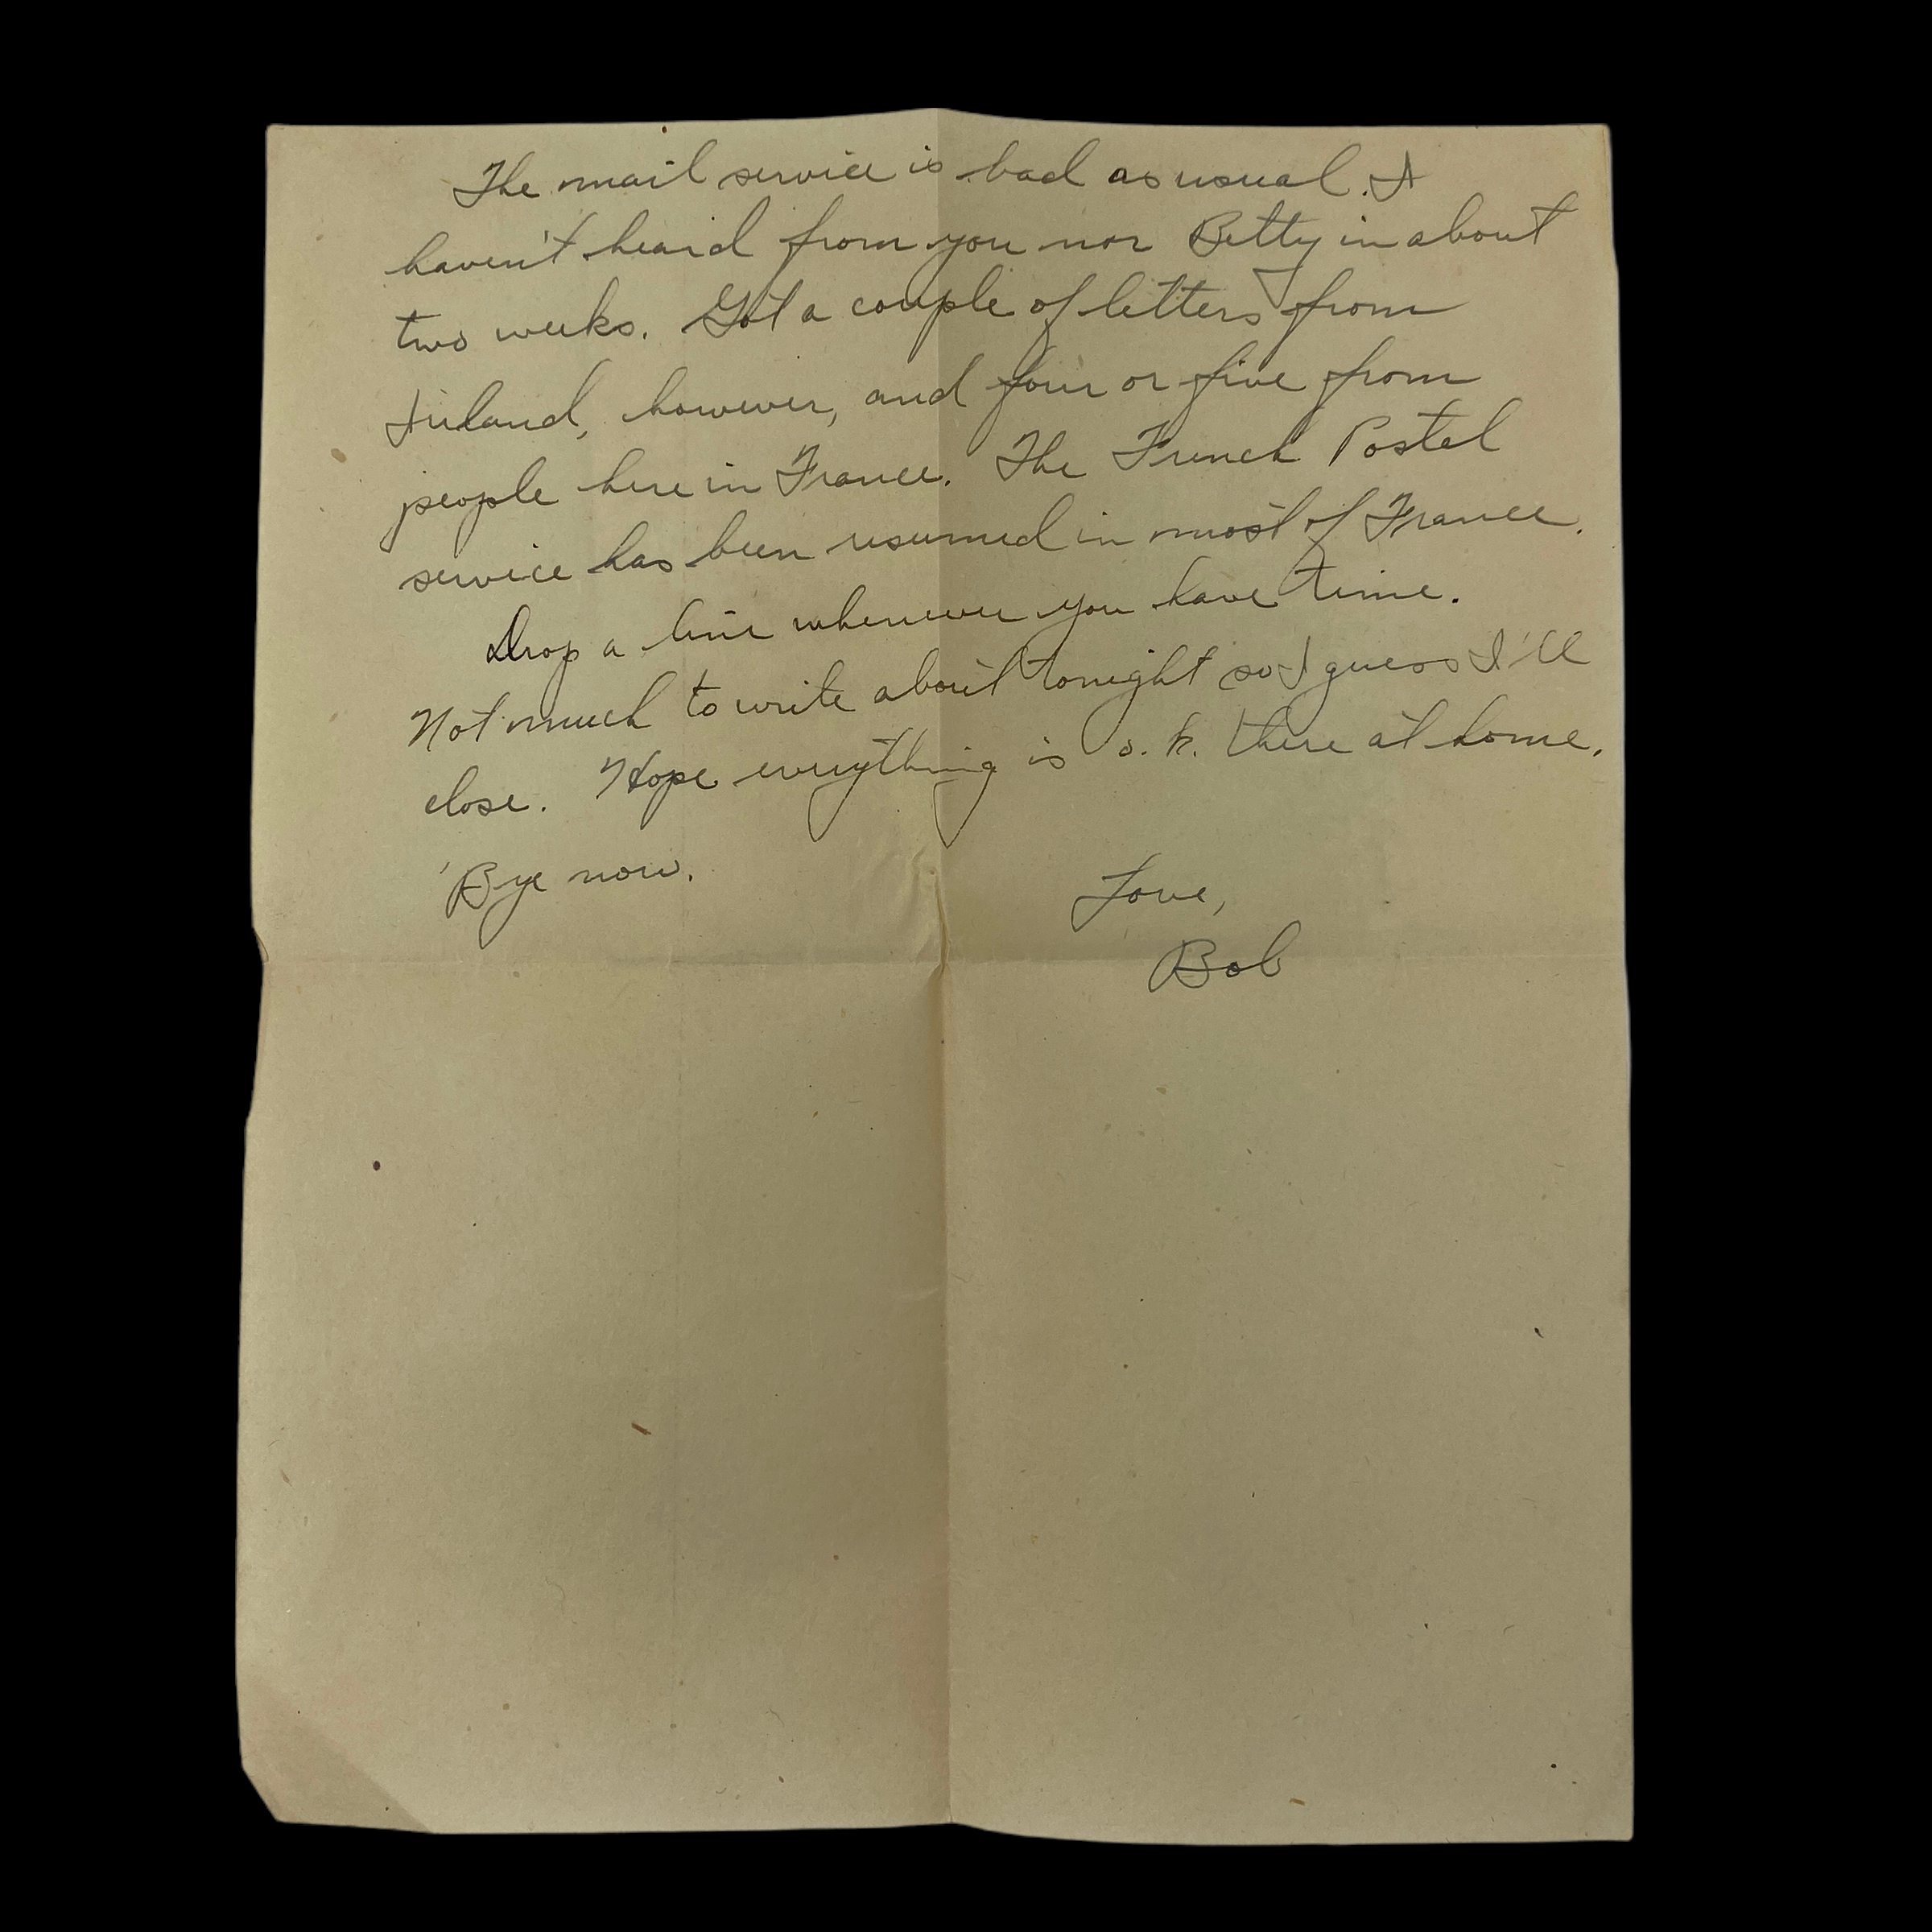 The mail service is bad as usual. I
haven't heard from you nor Betty in about
two weeks. Got a couple of letters from
Ireland, however, and four or five from
people here in France. The French Postel
service has been resumed in most of France.
Drop a line whenever you have time.
Not much to write about tonight so I guess I'll
close. Hope everything is o.k. there at home.
'Bye now.
Love,
Bob